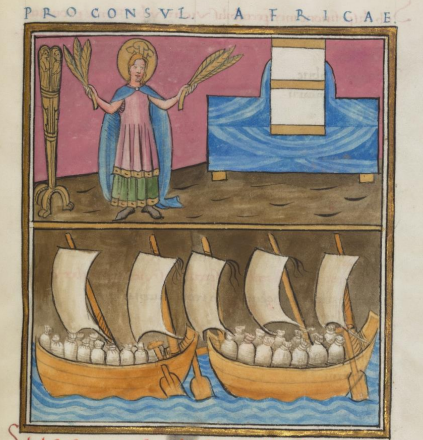 PROCONSUL AFRICAE